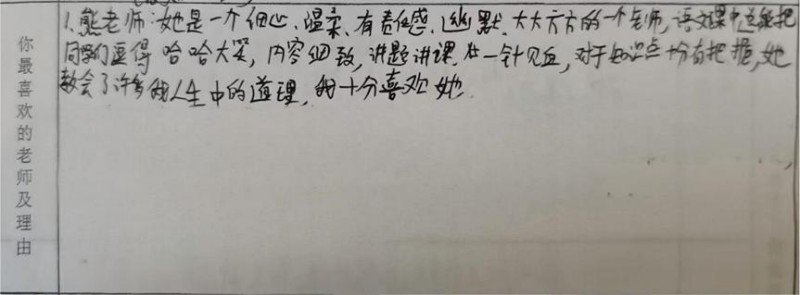 你最喜欢的老师及理由
1.熊老师:她是一个细心、温柔、有责任感、幽默、大大方方的一个老师,语文课中总能把
同学们逗得哈哈大笑,内容细致,讲题讲课一针见血,对于知识点十分有把握,她
教会了许多我人生中的道理,我十分喜欢她.